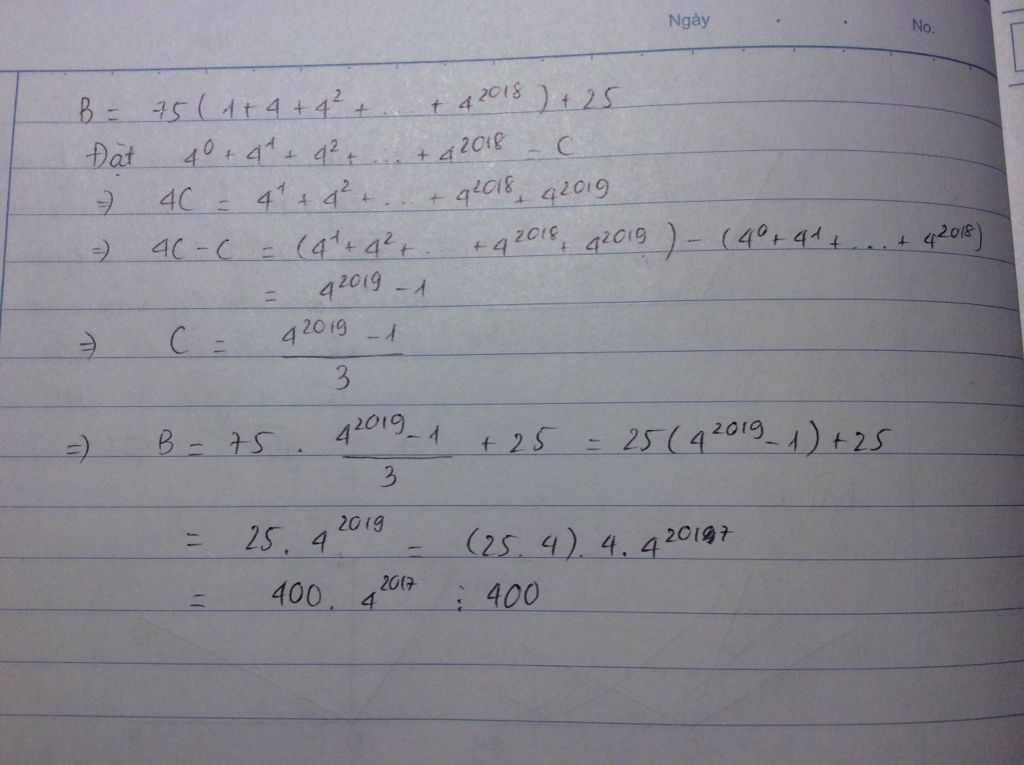 Ngày . . No.
B = 75 ( 1 + 4 + 4² + ... + 4²⁰¹⁸ ) + 25
Đặt 4⁰ + 4¹ + 4² + ... + 4²⁰¹⁸ = C
⇒ 4C = 4¹ + 4² + ... + 4²⁰¹⁸ + 4²⁰¹⁹
⇒ 4C - C = (4¹ + 4² + ... + 4²⁰¹⁸ + 4²⁰¹⁹ ) - (4⁰ + 4¹ + ... + 4²⁰¹⁸)
= 4²⁰¹⁹ - 1
⇒ C = (4²⁰¹⁹ - 1)/3
⇒ B = 75 . (4²⁰¹⁹ - 1)/3 + 25 = 25(4²⁰¹⁹ - 1) + 25
= 25 . 4²⁰¹⁹ = (25 . 4) . 4 . 4²⁰¹⁷
= 400 . 4²⁰¹⁷ ⋮ 400